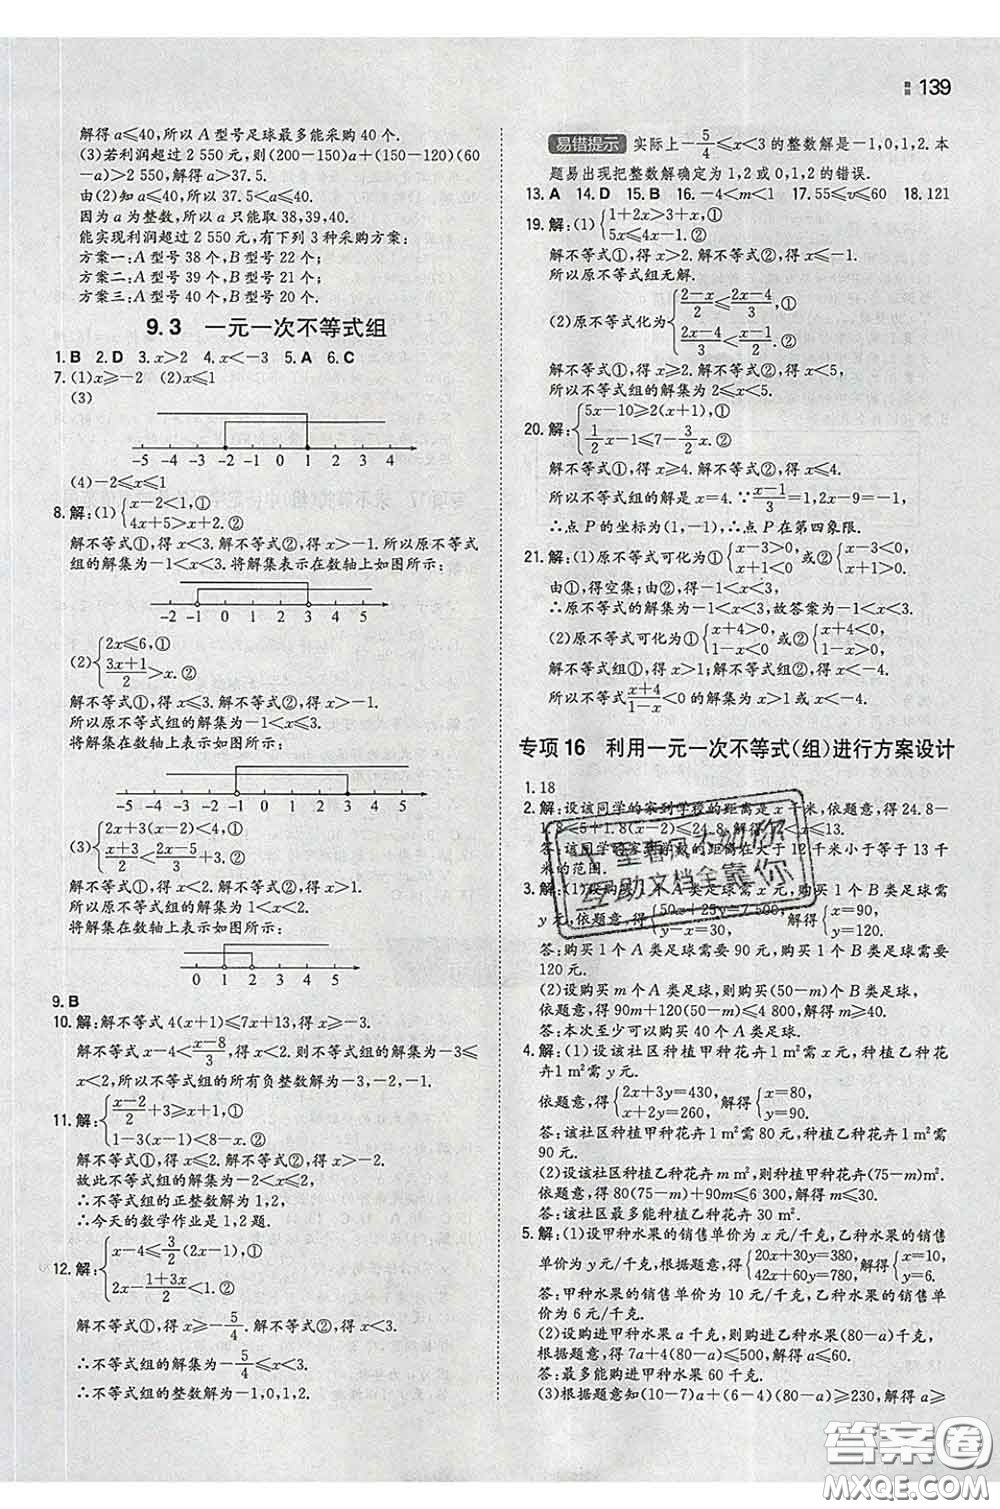 数目 139
解得 a≤40,所以 A 型号足球最多能采购 40 个.
(3)若利润超过 2 550 元,则(200-150)a+(150-120)(60
-a)>2 550,解得 a>37.5.
由(2)知 a≤40,所以 37.5<a≤40.
因为 a 为整数,所以 a 只能取 38,39,40.
能实现利润超过 2 550 元,有下列 3 种采购方案:
方案一:A 型号 38 个,B 型号 22 个;
方案二:A 型号 39 个,B 型号 21 个;
方案三:A 型号 40 个,B 型号 20 个.
9.3 一元一次不等式组
1.B 2.D 3.x>2 4.x<-3 5.A 6.C
7.(1)x≥-2 (2)x≤1
(3)
-5 -4 -3 -2 -1 0 1 2 3 4
(4)-2≤x≤1
8.解:(1){x-2<1,①
4x+5>x+2.②
解不等式①,得 x<3.解不等式②,得 x>-1.所以原不等式
组的解集为-1<x<3.将解集表示在数轴上如图所示:
-2 -1 0 1 2 3 4 5
(2){2x≤6,①
(3x+1)/2>x.②
解不等式①,得 x≤3.解不等式②,得 x>-1.
所以原不等式组的解集为-1<x≤3.
将解集在数轴上表示如图所示:
-4 -3 -2 -1 0 1 2 3 4 5
(3){2x+3(x-2)<4,①
(x+3)/2<(2x-5)/3+3.②
解不等式①,得 x<2.解不等式②,得 x>1.
所以原不等式组的解集为 1<x<2.
将解集在数轴上表示如图所示:
-1 0 1 2 3 4 5
9.B
10.解:解不等式 4(x+1)≤7x+13,得 x≥-3.
解不等式 x-4<(x-8)/3,得 x<2.则不等式组的解集为-3≤
x<2,所以不等式组的所有负整数解为-3,-2,-1.
11.解:{(x-2)/2+3≥x+1,①
1-3(x-1)<8-x.②
解不等式①,得 x≤2.解不等式②,得 x>-2.
故此不等式组的解集为-2<x≤2.
∴不等式组的正整数解为 1,2,
∴今天的数学作业是 1,2 题.
12.解:{x-4≤3/2(2x-1),①
2x-(1+3x)/2<1.②
解不等式①,得 x≥-5/4.解不等式②,得 x<3.
∴不等式组的解集为-5/4≤x<3.
∴不等式组的整数解为-1,0,1,2.
易错提示 实际上-5/4≤x<3 的整数解是-1,0,1,2.本
题易出现把整数解确定为 1,2 或 0,1,2 的错误.
13.A 14.D 15.B 16.-4<m<1 17.55≤v≤60 18.121
19.解:(1){1+2x>3+x,①
5x≤4x-1.②
解不等式①,得 x>2.解不等式②,得 x≤-1.
所以原不等式组无解.
(2)原不等式化为{(2-x)/2≤(2x-4)/3,①
(2x-4)/3<(x-1)/2.②
解不等式①,得 x≥2.解不等式②,得 x<5,
所以原不等式组的解集为 2≤x<5.
20.解:{5x-10≥2(x+1),①
1/2x-1≤7-3/2x.②
解不等式①,得 x≥4.解不等式②,得 x≤4.
所以不等式组的解是 x=4.∵(x-1)/3=1,2x-9=-1,
∴点 P 的坐标为(1,-1),∴点 P 在第四象限.
21.解:(1)原不等式可化为①{x-3>0, x+1<0 或②{x-3<0, x+1>0.
由①,得空集;由②,得-1<x<3,
∴原不等式的解集为-1<x<3,故答案为-1<x<3.
(2)原不等式可化为①{x+4>0, 1-x<0 或②{x+4<0, 1-x>0.
解不等式组①,得 x>1,解不等式组②,得 x<-4.
所以不等式(x+4)/(1-x)<0 的解集为 x>1 或 x<-4.
专项 16 利用一元一次不等式(组)进行方案设计
1.18
2.解:设该同学的家到学校的距离是 x 千米,依题意,得 24.8-
1.8<5+1.8(x-2)≤24.8,解得 12<x≤13.
答:该同学的家到学校的距离在大于 12 千米小于等于 13 千
米的范围.
3.解:(1)设购买 1 个 A 类足球需 x 元,购买 1 个 B 类足球需
y 元,依题意,得{50x+25y=7 500, y-x=30, 解得{x=90, y=120.
答:购买 1 个 A 类足球需要 90 元,购买 1 个 B 类足球需要
120 元.
(2)设购买 m 个 A 类足球,则购买(50-m)个 B 类足球,
依题意,得 90m+120(50-m)≤4 800,解得 m≥40.
答:本次至少可以购买 40 个 A 类足球.
4.解:(1)设该社区种植甲种花卉 1 m²需 x 元,种植乙种花
卉 1 m²需 y 元.
依题意,得{2x+3y=430, x+2y=260, 解得{x=80, y=90.
答:该社区种植甲种花卉 1 m²需 80 元,种植乙种花卉 1 m²需
90 元.
(2)设该社区种植乙种花卉 m m²,则种植甲种花卉(75-m)m².
依题意,得 80(75-m)+90m≤6 300,解得 m≤30.
答:该社区最多能种植乙种花卉 30 m².
5.解:(1)设甲种水果的销售单价为 x 元/千克,乙种水果的销售
单价为 y 元/千克,根据题意,得{20x+30y=380, 42x+60y=780, 解得{x=10, y=6.
答:甲种水果的销售单价为 10 元/千克,乙种水果的销售单
价为 6 元/千克.
(2)设购进甲种水果 a 千克,则购进乙种水果(80-a)千克,
根据题意,得 7a+4(80-a)≤500,解得 a≤60.
答:最多能购进甲种水果 60 千克.
(3)根据题意知(10-7)a+(6-4)(80-a)≥230,解得 a≥
互助文档全靠你
答案圈
MXQE.COM